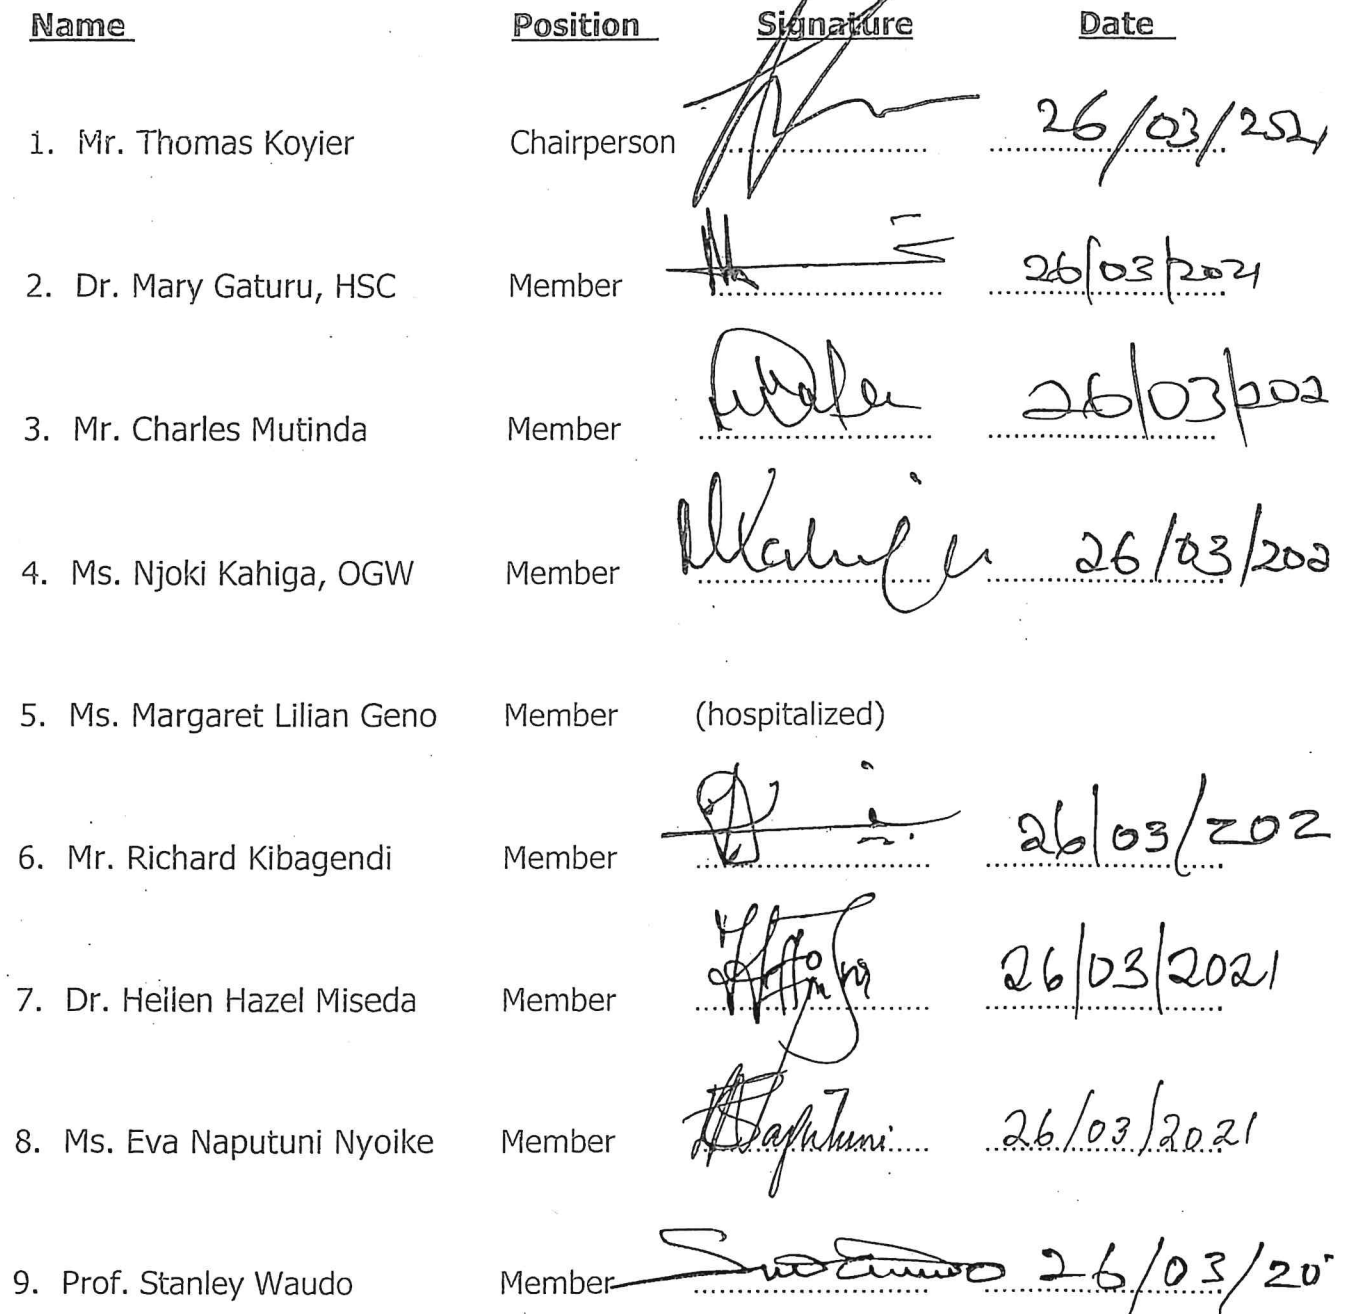 Name Position Signature Date
1. Mr. Thomas Koyier Chairperson 26/03/2021
2. Dr. Mary Gaturu, HSC Member 26/03/2021
3. Mr. Charles Mutinda Member 26/03/202
4. Ms. Njoki Kahiga, OGW Member 26/03/202
5. Ms. Margaret Lilian Geno Member (hospitalized)
6. Mr. Richard Kibagendi Member 26/03/202
7. Dr. Hellen Hazel Miseda Member 26/03/2021
8. Ms. Eva Naputuni Nyoike Member Naputuni 26/03/2021
9. Prof. Stanley Waudo Member 26/03/20